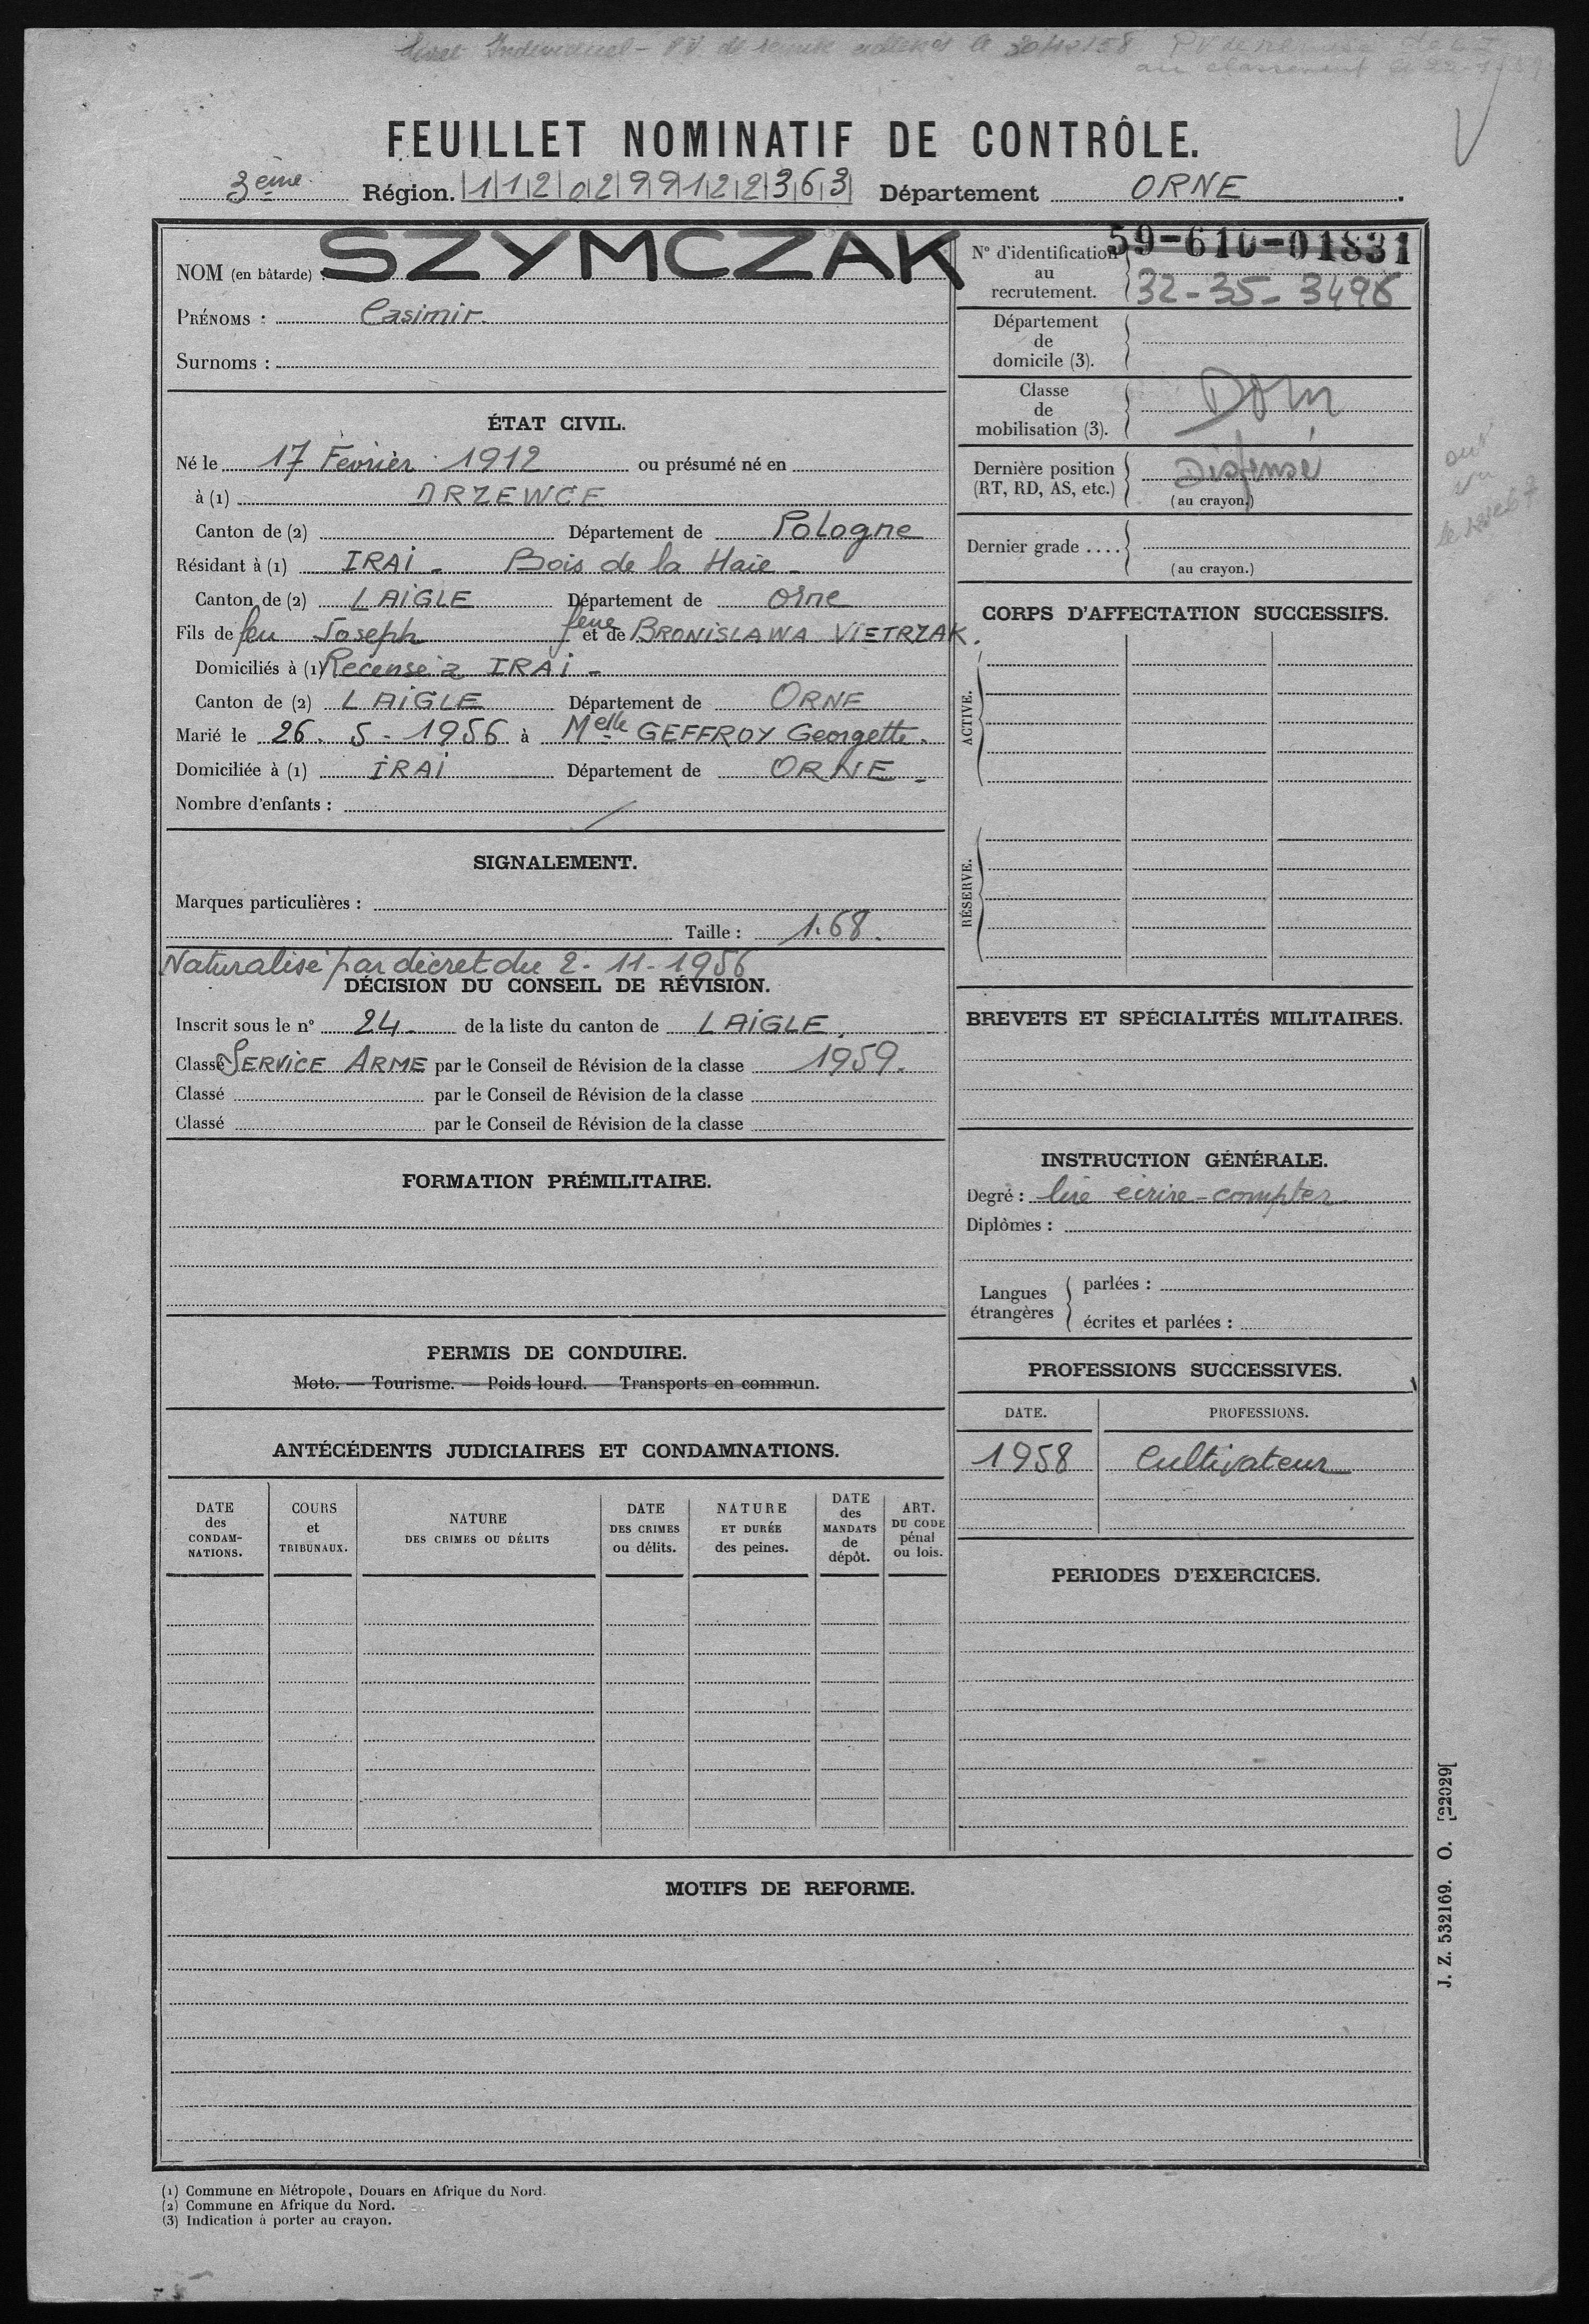 Livret Individuel - P.V. de remise
FEUILLET NOMINATIF DE CONTRÔLE.
3ème Région. 1 1 2 0 2 9 9 1 2 2 3 6 3 Département ORNE.
NOM (en bâtarde) : SZYMCZAK
PRÉNOMS : Casimir.
Surnoms :
ÉTAT CIVIL.
Né le 17 Février 1912 ou présumé né en
à (1) DRZEWCE
Canton de (2) Département de Pologne
Résidant à (1) IRAI - Bois de la Haie -
Canton de (2) LAIGLE Département de Orne
Fils de feu Joseph et de feue BRONISLAWA VIETRZAK.
Domiciliés à (1) Recensé à IRAI -
Canton de (2) LAIGLE Département de ORNE
Marié le 26. 5 - 1956 à Melle GEFFROY Georgette.
Domiciliée à (1) IRAI Département de ORNE -
Nombre d'enfants : /
SIGNALEMENT.
Marques particulières :
Taille : 1.68.
Naturalisé par décret du 2 - 11 - 1956
DÉCISION DU CONSEIL DE RÉVISION.
Inscrit sous le n° 24 - de la liste du canton de LAIGLE.
Classé SERVICE ARME par le Conseil de Révision de la classe 1959.
Classé par le Conseil de Révision de la classe
Classé par le Conseil de Révision de la classe
FORMATION PRÉMILITAIRE.
PERMIS DE CONDUIRE.
Moto. — Tourisme. — Poids lourd. — Transports en commun.
ANTÉCÉDENTS JUDICIAIRES ET CONDAMNATIONS.
DATE des CONDAM-NATIONS.
COURS et TRIBUNAUX.
NATURE DES CRIMES OU DÉLITS
DATE DES CRIMES ou délits.
NATURE ET DURÉE des peines.
DATE des MANDATS de dépôt.
ART. DU CODE pénal ou lois.
N° d'identification au recrutement. 59-610-01831
32-35-3498
Département de domicile (3).
Classe de mobilisation (3). Dom
Dernière position (RT, RD, AS, etc.) Dispensé
(au crayon.)
Dernier grade ....
(au crayon.)
CORPS D'AFFECTATION SUCCESSIFS.
ACTIVE.
RÉSERVE.
BREVETS ET SPÉCIALITÉS MILITAIRES.
INSTRUCTION GÉNÉRALE.
Degré : lire écrire - compter
Diplômes :
Langues étrangères
parlées :
écrites et parlées :
PROFESSIONS SUCCESSIVES.
DATE. PROFESSIONS.
1958 Cultivateur
PERIODES D'EXERCICES.
MOTIFS DE REFORME.
J. Z. 532169. O. [22029]
(1) Commune en Métropole, Douars en Afrique du Nord.
(2) Commune en Afrique du Nord.
(3) Indication à porter au crayon.